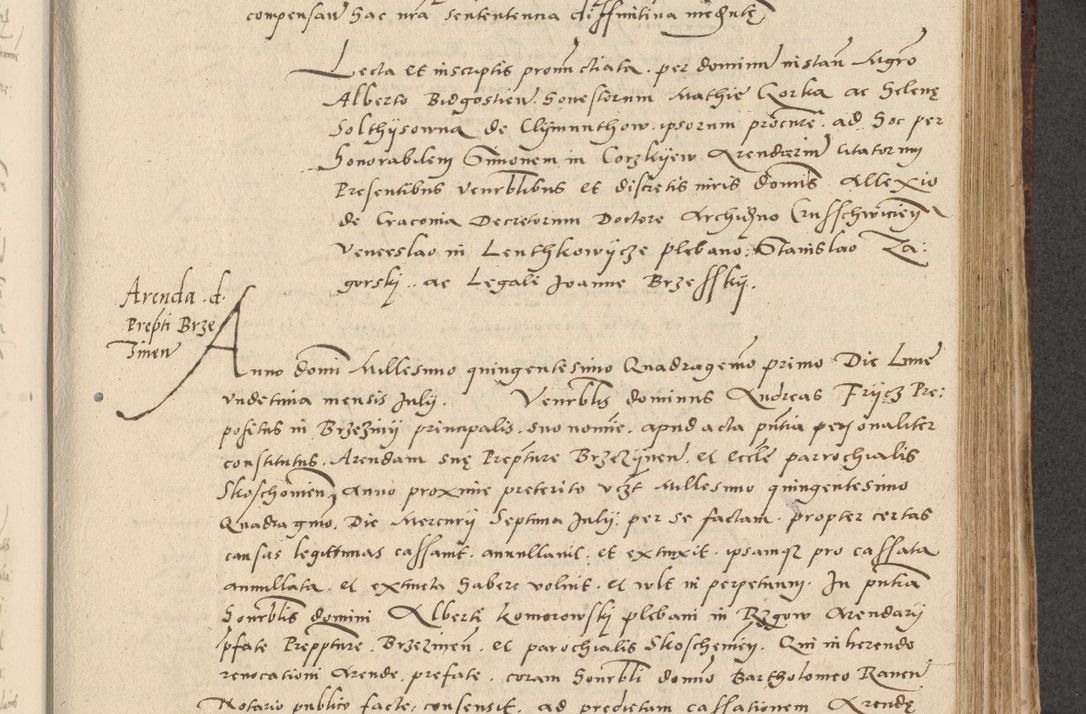 compensavit hac nra sententencia diffinitiva mediante
Lecta et in scriptis pronunctiata per dominum instan Mgro
Alberto Bidgostien honestorum Mathie Gorka ac Helene
Solthijsowna de Clymunthow ipsorum procure ad hoc per
honorabilem Simonem in Corzkijew Arendarium citatorum
Presentibus venrblibus et discretis viris domis Allexio
de Craconia Decretorum Doctore Archidno Crusschwicien
Venceslao in Lenthkowijcze plebano Stanislao Za:
gorskj ac Legali Joanne Brzesskij.
Arenda d.
Prepti Brze
zinen
Anno domi Millesimo quingentesimo Quadragemo primo Die Lune
undecima mensis Julij. Venrblis dominus Andreas Frijcz Pre:
positus in Brzeznij principalis suo nomine apud acta pntia personaliter
constitutus Arendam sue Prepture Brzezijnen et eccle parrochialis
Skoschonien anno proxime preterito vczt Millesimo quingentesimo
Quadragmo Die Mercurij Septima Julij per se factam propter certas
causas legittimas cassavit annullavit et extinxit ipsamqz pro cassata
annullata et extincta habere voluit et vlt in perpetuum In pntia
honrblis domini Alberti Komorowskj plebani in Rzgow Arendarij
pfate Preppture Brzezinen et parochialis Skoschemien Qui inherendo
revocationi Arende prefate coram honrbli domino Bartholomeo Rancn
Notario publico facte consensit ad predictam cassationem Arende